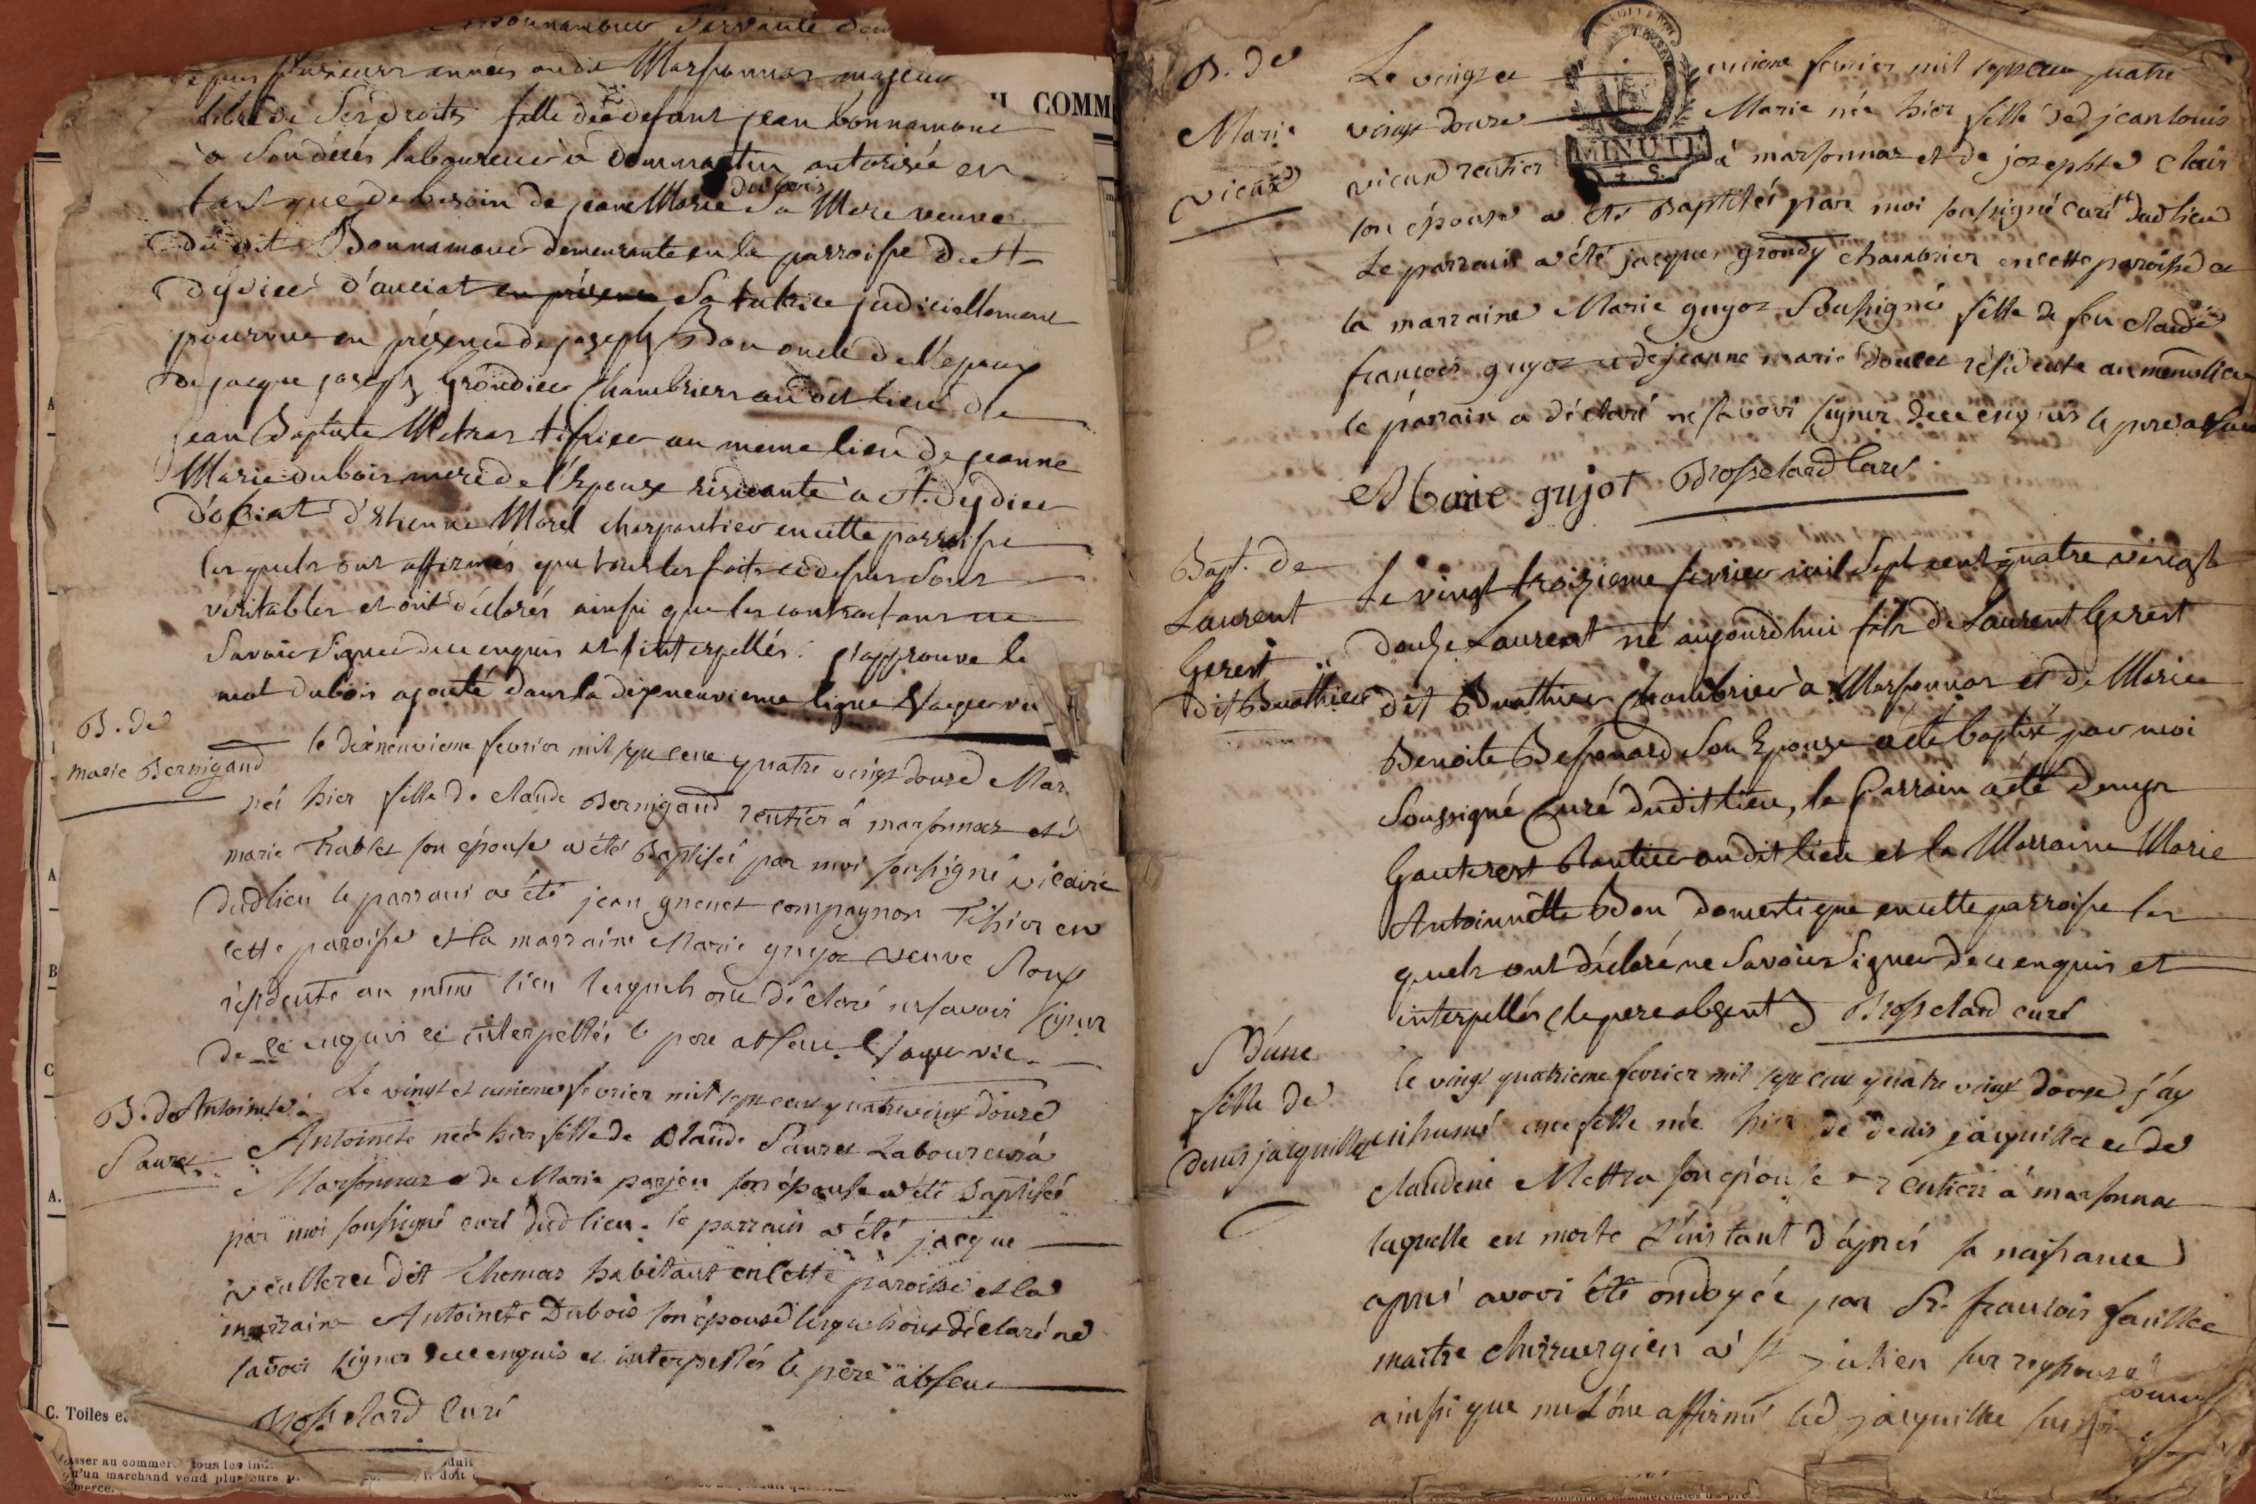 Bonnamour servante dem
depuis plusieurs années audit Marsonnas majeur
libre de ses droits fille de defunt jean bonnamour
a son décès laboureur à dommartin autorisée en
tant que de besoin de jeanne Marie dubois sa Mere veuve
du dit Bonnamour demeurante en la parroisse de St
dydier d'auciat en présence sa tutrice judiciellement
pourvue en présence de joseph Bon oncle de l'epoux
de jacque joseph Grondier Chambrier audit lieu de
jean Baptiste Metras tissier au meme lieu de jeanne
Marie dubois mere de l'Epouse residante a St. Dydier
d'ossiat d'Ethienne Morel charpentier en cette parroisse
les quels ont affirmés que tous les faits cidessus sont
veritables et ont déclarés ainsi que les contractans ne
savoir signer de ce enquis et interpellés. j'approuve le
mot dubois ajouté dans la dixneuvieme ligne
B. de
marie Bernigaud
le dixneuvieme fevrier mil sept cent quatre vingt douze Mar
née hier fille de claude Bernigaud rentier à marsonnas et d
marie Trablet son épouse a été Baptisée par moi soussigné vicaire
dudlieu le parrain a été jean guenet compagnon Tissier en
cette paroisse et la marraine Marie guyot veuve Roux
résidente au même lieu lesquels ont déclaré ne savoir signer
de ce enquis et interpellés le pere absent.
B. de Antoinete
Pauret
Le vingt et unieme fevrier mil sept cent quatre vingt douze
Antoinete née hier fille de Claude Pauret Laboureur à
Marsonnas et de Marie parjeu son épouse a été Baptisée
par moi soussigné curé dudlieu. le parrain a été jacque
veuilleret dit Thomas habitant en cette paroisse et la
marraine Antoinete Dubois son épouse lesquels ont déclaré ne
savoir signer de ce enquis et interpellés le père absent
Brosselard Curé
B. de
Marie
vieux
Le vingt et unieme fevrier mil sept cent quatre
vingt douze Marie née hier fille de jean louis
vieux rentier à marsonnas et de josephte Clair
son épouse a été Baptisée par moi soussigné curé dudlieu
Le parrain a été jacque grondy chambrier en cette paroisse et
la marraine Marie guyot Soussigné fille de feu claude
françois guyot et de jeanne marie doucet résidente au même lieu
le parrain a déclaré ne savoir signer de ce enquis le pere absent
Marie gujot Brosselard Curé
MINUTE
Bapt. de
Laurent
Gerest
dit Buathier
Le vingt troizieme fevrier mil sept cent quatre vingt
douze Laurent né aujourdhui fils de Laurent Gerest
dit Buathier Chambrier à Marsonnas et de Marie
Benoite Besonard son Epouse a été baptisé par moi
Soussigné Curé dudit lieu, le Parrain a été Denys
Gauterest Rentier audit lieu et la Marraine Marie
Antoinnette Bon domestique en cette parroisse les
quels ont déclaré ne Savoir Signer de ce enquis et
interpellés (le pere absent) Brosselard curé
S d'une
fille de
denis jacquillet
le vingt quatrieme fevrier mil sept cent quatre vingt douze j'ay
inhumé une fille née hier de denis jacquillet et de
claudene Mettra son épouse rentiers à marsonnas
laquelle est morte L'instant d'après sa naissance
après avoir été ondoyée par Sr. francois faillet
maitre chirurgien à St julien sur reyssouze
ainsi que me l'ont affirmé led jacquillet
C. Toiles e
COMM